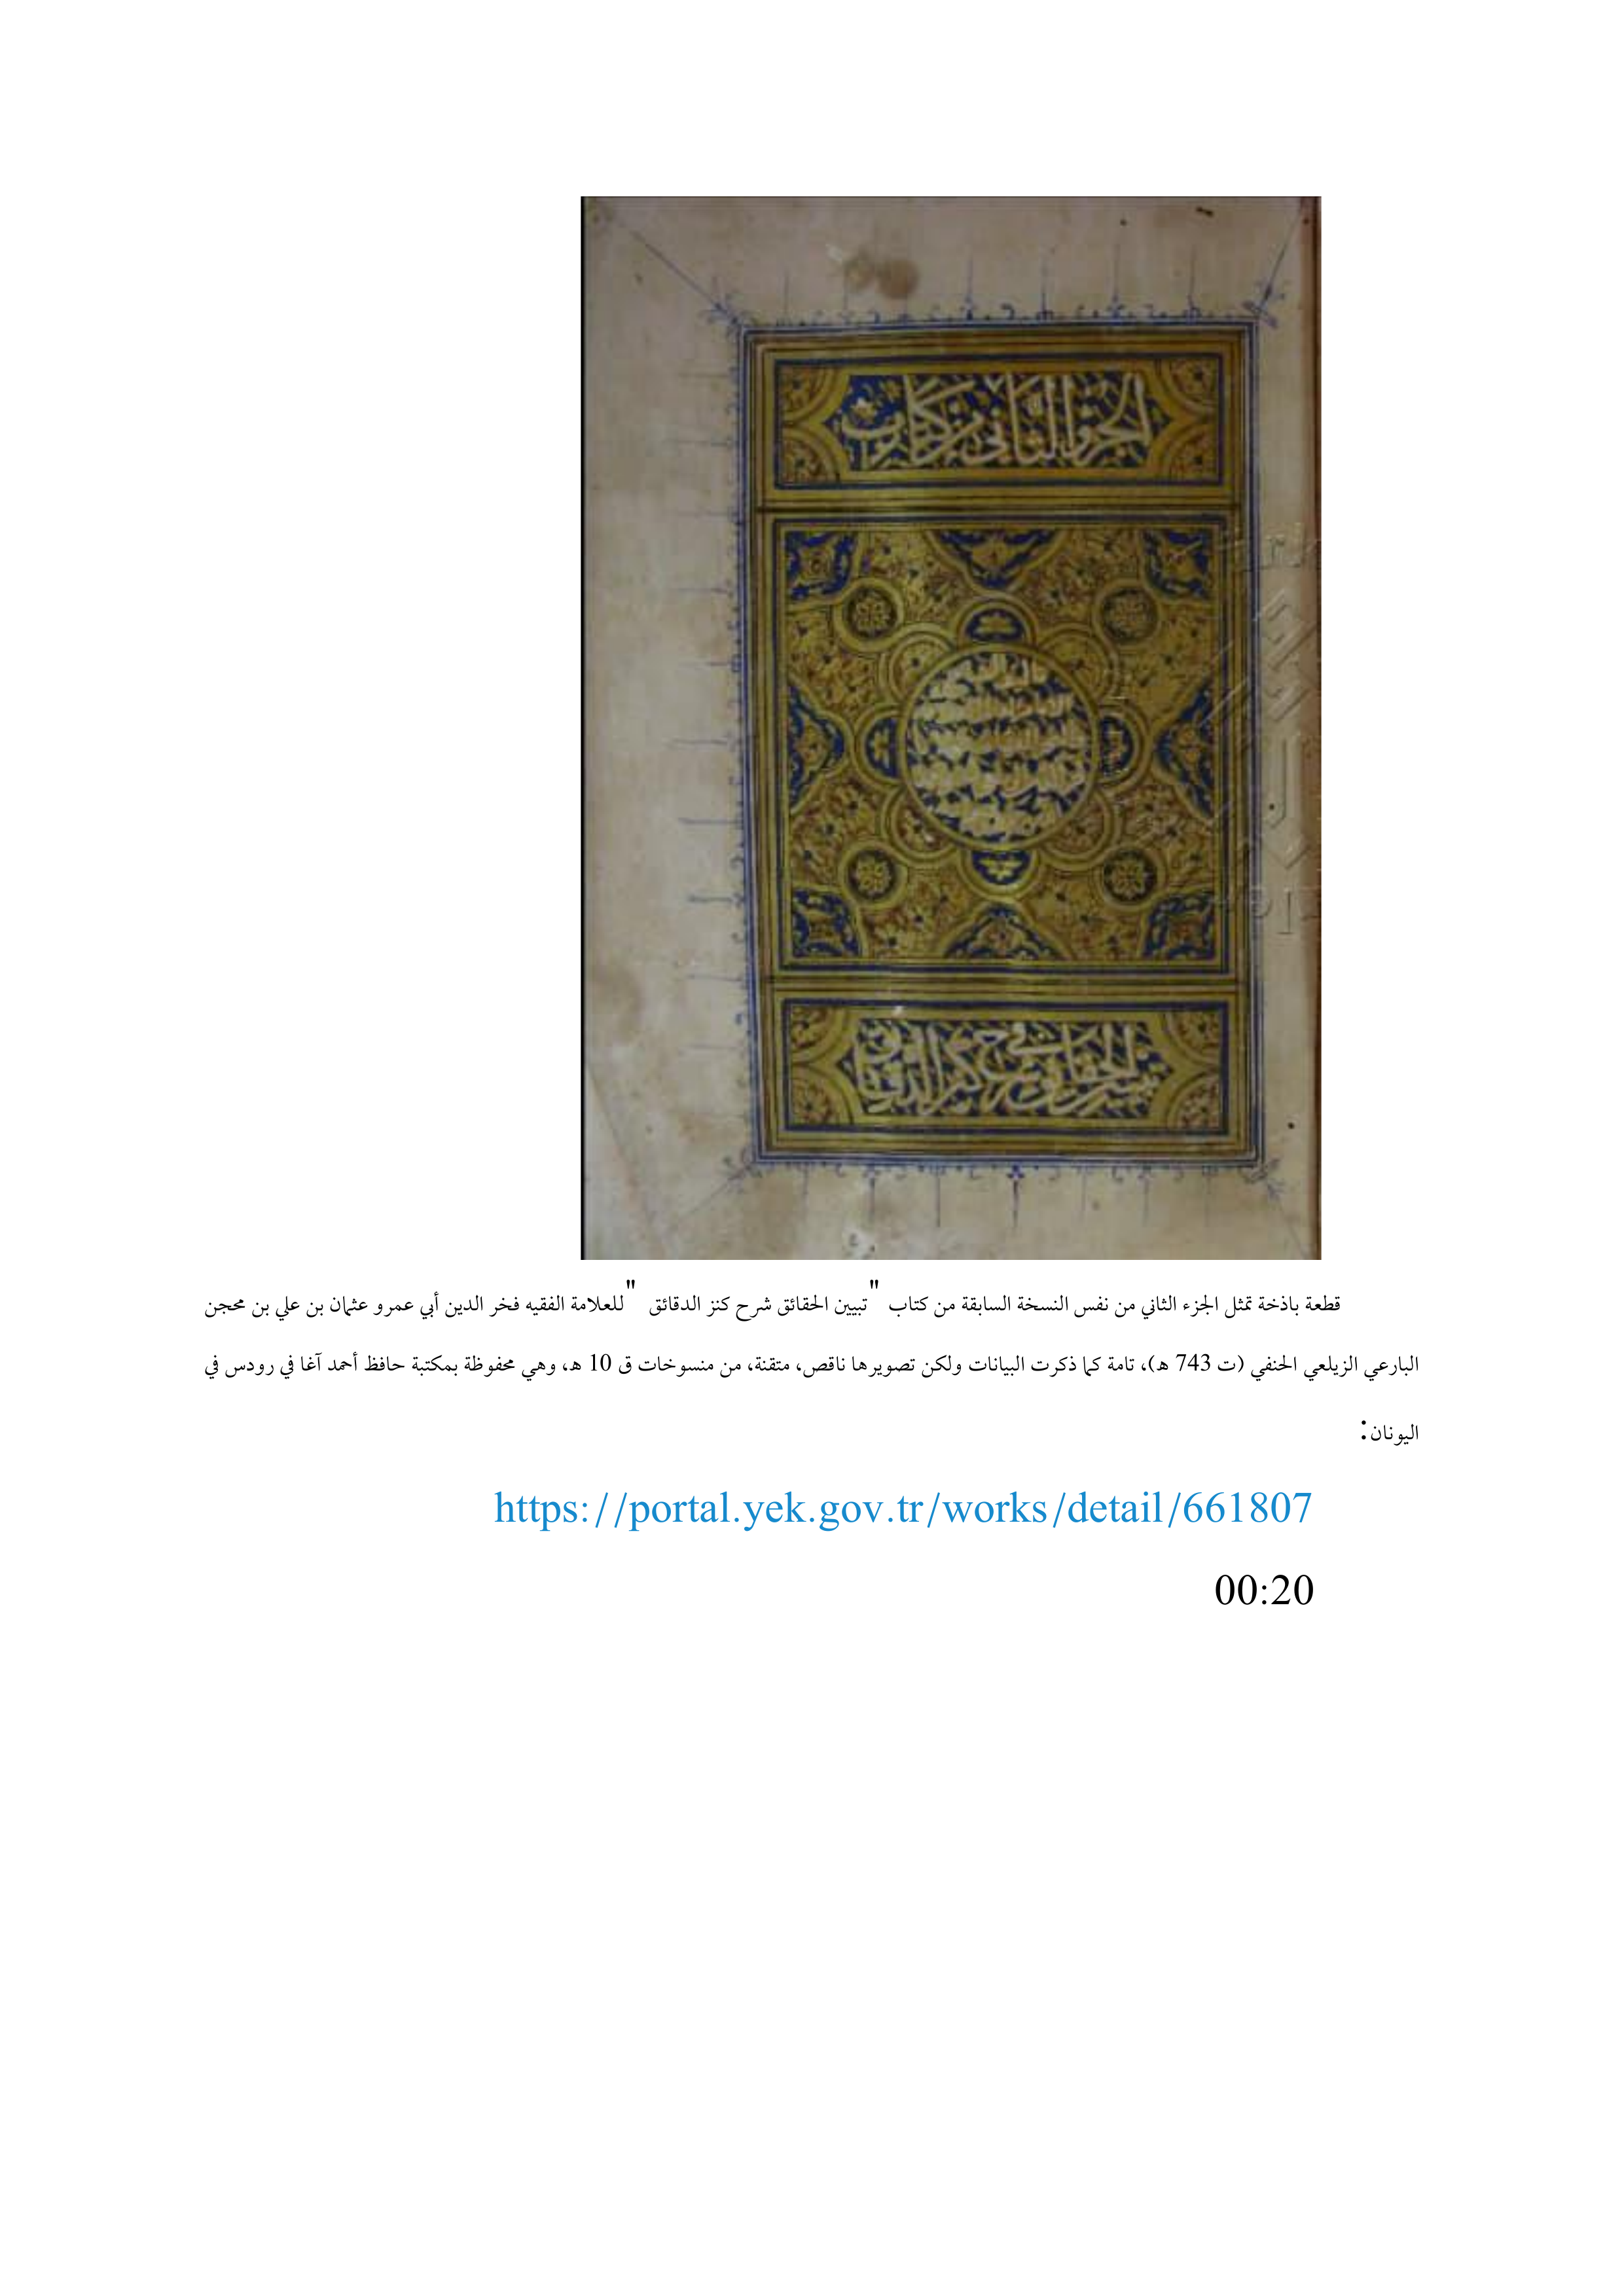 الجزو الثاني من كتاب
تبيين الحقائق في شرح كنز الدقائق
قطعة باذخة تمثل الجزء الثاني من نفس النسخة السابقة من كتاب "تبيين الحقائق شرح كنز الدقائق "للعلامة الفقيه فخر الدين أبي عمرو عثمان بن علي بن محجن
البارعي الزيلعي الحنفي (ت 743 هـ)، تامة كما ذكرت البيانات ولكن تصويرها ناقص، متقنة، من منسوخات ق 10 هـ، وهي محفوظة بمكتبة حافظ أحمد آغا في رودس في
اليونان:
https://portal.yek.gov.tr/works/detail/661807
00:20